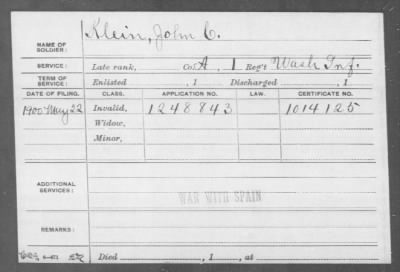 NAME OF SOLDIER: Klein, John C.
SERVICE: Late rank, Co. A, 1 Reg't Wash Inf.
TERM OF SERVICE: Enlisted , 1 Discharged , 1
DATE OF FILING. CLASS. APPLICATION NO. LAW. CERTIFICATE NO.
1900 May 22 Invalid, 1248843 1014125
Widow,
Minor,
ADDITIONAL SERVICES:
WAR WITH SPAIN
REMARKS:
Died , 1 , at